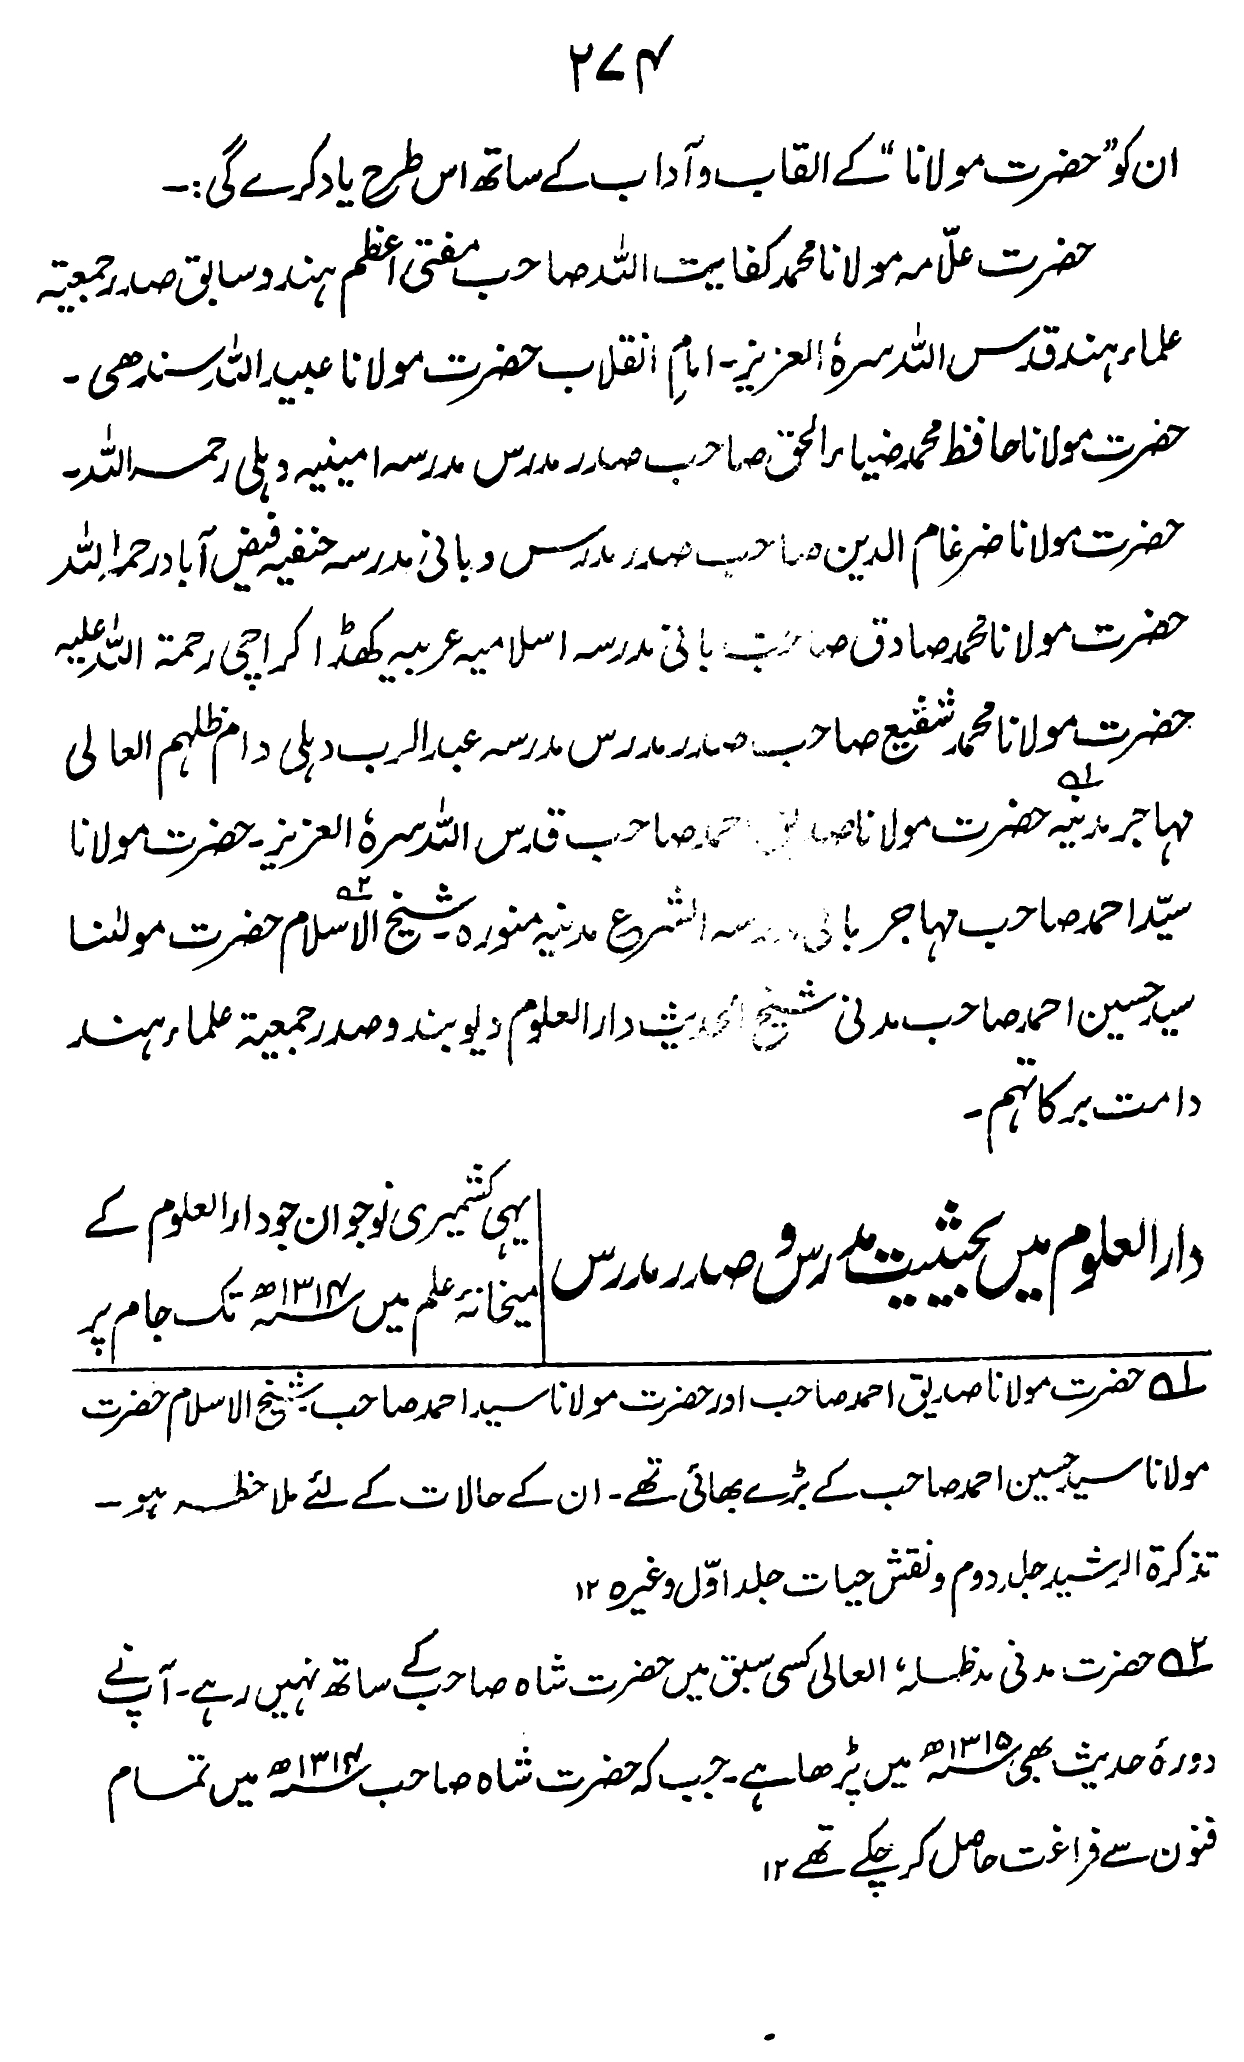 ۲۷۴
ان کو "حضرت مولانا" کے القاب و آداب کے ساتھ اس طرح یاد کرے گی:۔
حضرت علّامہ مولانا محمد کفایت اللہ صاحب مفتی اعظم ہند و سابق صدر جمعیۃ
علماء ہند قدس اللہ سرہٗ العزیز۔ امامِ انقلاب حضرت مولانا عبید اللہ سندھی۔
حضرت مولانا حافظ محمد ضیاء الحق صاحب صدر مدرس مدرسہ امینیہ دہلی رحمہ اللہ۔
حضرت مولانا ضرغام الدین صاحب صدر مدرس و بانی مدرسہ حنفیہ فیض آباد رحمہ اللہ
حضرت مولانا محمد صادق صاحب بانی مدرسہ اسلامیہ عربیہ کھڈا کراچی رحمۃ اللہ علیہ
حضرت مولانا محمد شفیع صاحب صدر مدرس مدرسہ عبدالرب دہلی دام ظلہم العالی
مہاجر مدنیہ حضرت مولانا صدیق احمد صاحب ؎۱ قدس اللہ سرہٗ العزیز۔ حضرت مولانا
سیّد احمد صاحب مہاجر بانی مدرسہ الشرع مدنیہ منورہ۔ شیخ الاسلام ؎۲ حضرت مولٰنا
سید حسین احمد صاحب مدنی شیخ الحدیث دار العلوم دیوبند و صدر جمعیۃ علماء ہند
دامت برکاتہم۔
دار العلوم میں بحیثیت مدرس و صدر مدرس
یہی کشمیری نوجوان جو دار العلوم کے
میخانۂ علم میں ۱۳۱۴ھ تک جام پر
؎۱ حضرت مولانا صدیق احمد صاحب اور حضرت مولانا سید احمد صاحب شیخ الاسلام حضرت
مولانا سید حسین احمد صاحب کے بڑے بھائی تھے۔ ان کے حالات کے لئے ملاحظہ ہو۔
تذکرۃ الرشید جلد دوم و نقش حیات جلد اوّل وغیرہ ۱۲
؎۲ حضرت مدنی مدظلہٗ العالی کسی سبق میں حضرت شاہ صاحب کے ساتھ نہیں رہے۔ آپ نے
دورۂ حدیث بھی ۱۳۱۵ھ میں پڑھا ہے۔ جب کہ حضرت شاہ صاحب ۱۳۱۴ھ میں تمام
فنون سے فراغت حاصل کر چکے تھے ۱۲